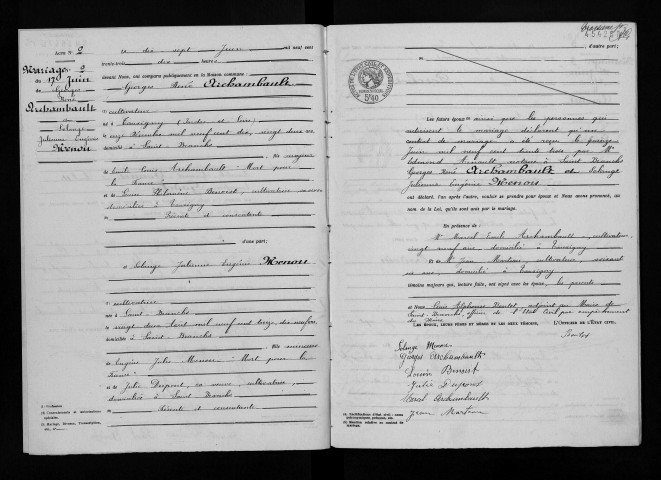 Acte N° 2
Mariages 2
du 17 Juin
Georges
René
Archambault
et
Solange
Julienne Eugénie
Menou
Le dix sept Juin mil neuf cent
trente trois dix heures
devant Nous, ont comparu publiquement en la Maison commune :
Georges René Archambault
cultivateur
né à Tauxigny (Indre et Loire)
le onze mil neuf cent dix, vingt deux ans
domicilié à Saint Branchs
fils majeur
de Emile Louis Archambault "Mort pour
la France"
et de Philomène Benoist, cultivatrice sa veuve
domiciliée à Tauxigny
Présente et consentante
d'une part;
et Solange Julienne Eugénie Menou
cultivatrice
née à Saint Branchs
le vingt deux Août mil neuf cent treize, dix neuf ans
domiciliée à Saint Branchs
fille mineure
de Eugène Jules Menou "Mort pour la
France"
et de Julie Dupont, sa veuve, cultivatrice,
domiciliée à Saint Branchs
Présente et consentante
d'autre part;
5F40
Les futurs époux ainsi que les personnes qui
autorisent le mariage déclarent qu'un
contrat de mariage a été reçu le quinze
Juin mil neuf cent trente trois par Me
Edmond notaire à Saint Branchs
Georges René Archambault et Solange
Julienne Eugénie Menou
ont déclaré, l'un après l'autre, vouloir se prendre pour époux et Nous avons prononcé, au
nom de la Loi, qu'ils sont unis par le mariage.
En présence de
M. Marcel Emile Archambault, cultivateur,
vingt neuf ans domicilié à Tauxigny
et M. Jean cultivateur, soixante
ans, domicilié à Tauxigny
témoins majeurs qui, lecture faite, ont signé avec les époux,
et Nous Louis Alphonse Boutet, adjoint au Maire de
Saint Branchs officier de l'Etat Civil par empêchement
du Maire
LES ÉPOUX, LEURS PÈRES ET MÈRES ET LES DEUX TÉMOINS, L'OFFICIER DE L'ÉTAT CIVIL,
Solange Menou
Georges Archambault
Benoist
Julie Dupont
Marcel Archambault
Jean